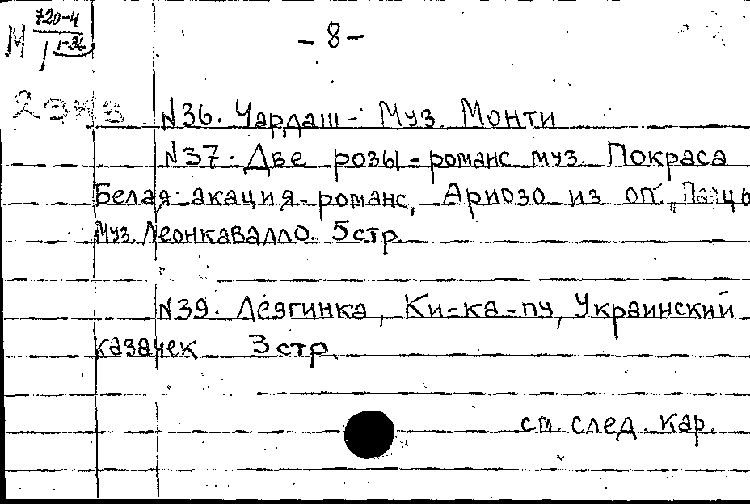 М 720-4
1-36
- 8 -
2 экз
№36. Чардаш - Муз. Монти
№37. Две розы - романс муз. Покраса
Белая акация - романс, Ариозо из оп. "Паяцы
Муз. Леонкавалло. 5стр.
№39. Лезгинка, Ки-ка-пу, Украинский
казачек 3стр.
см. след. кар.